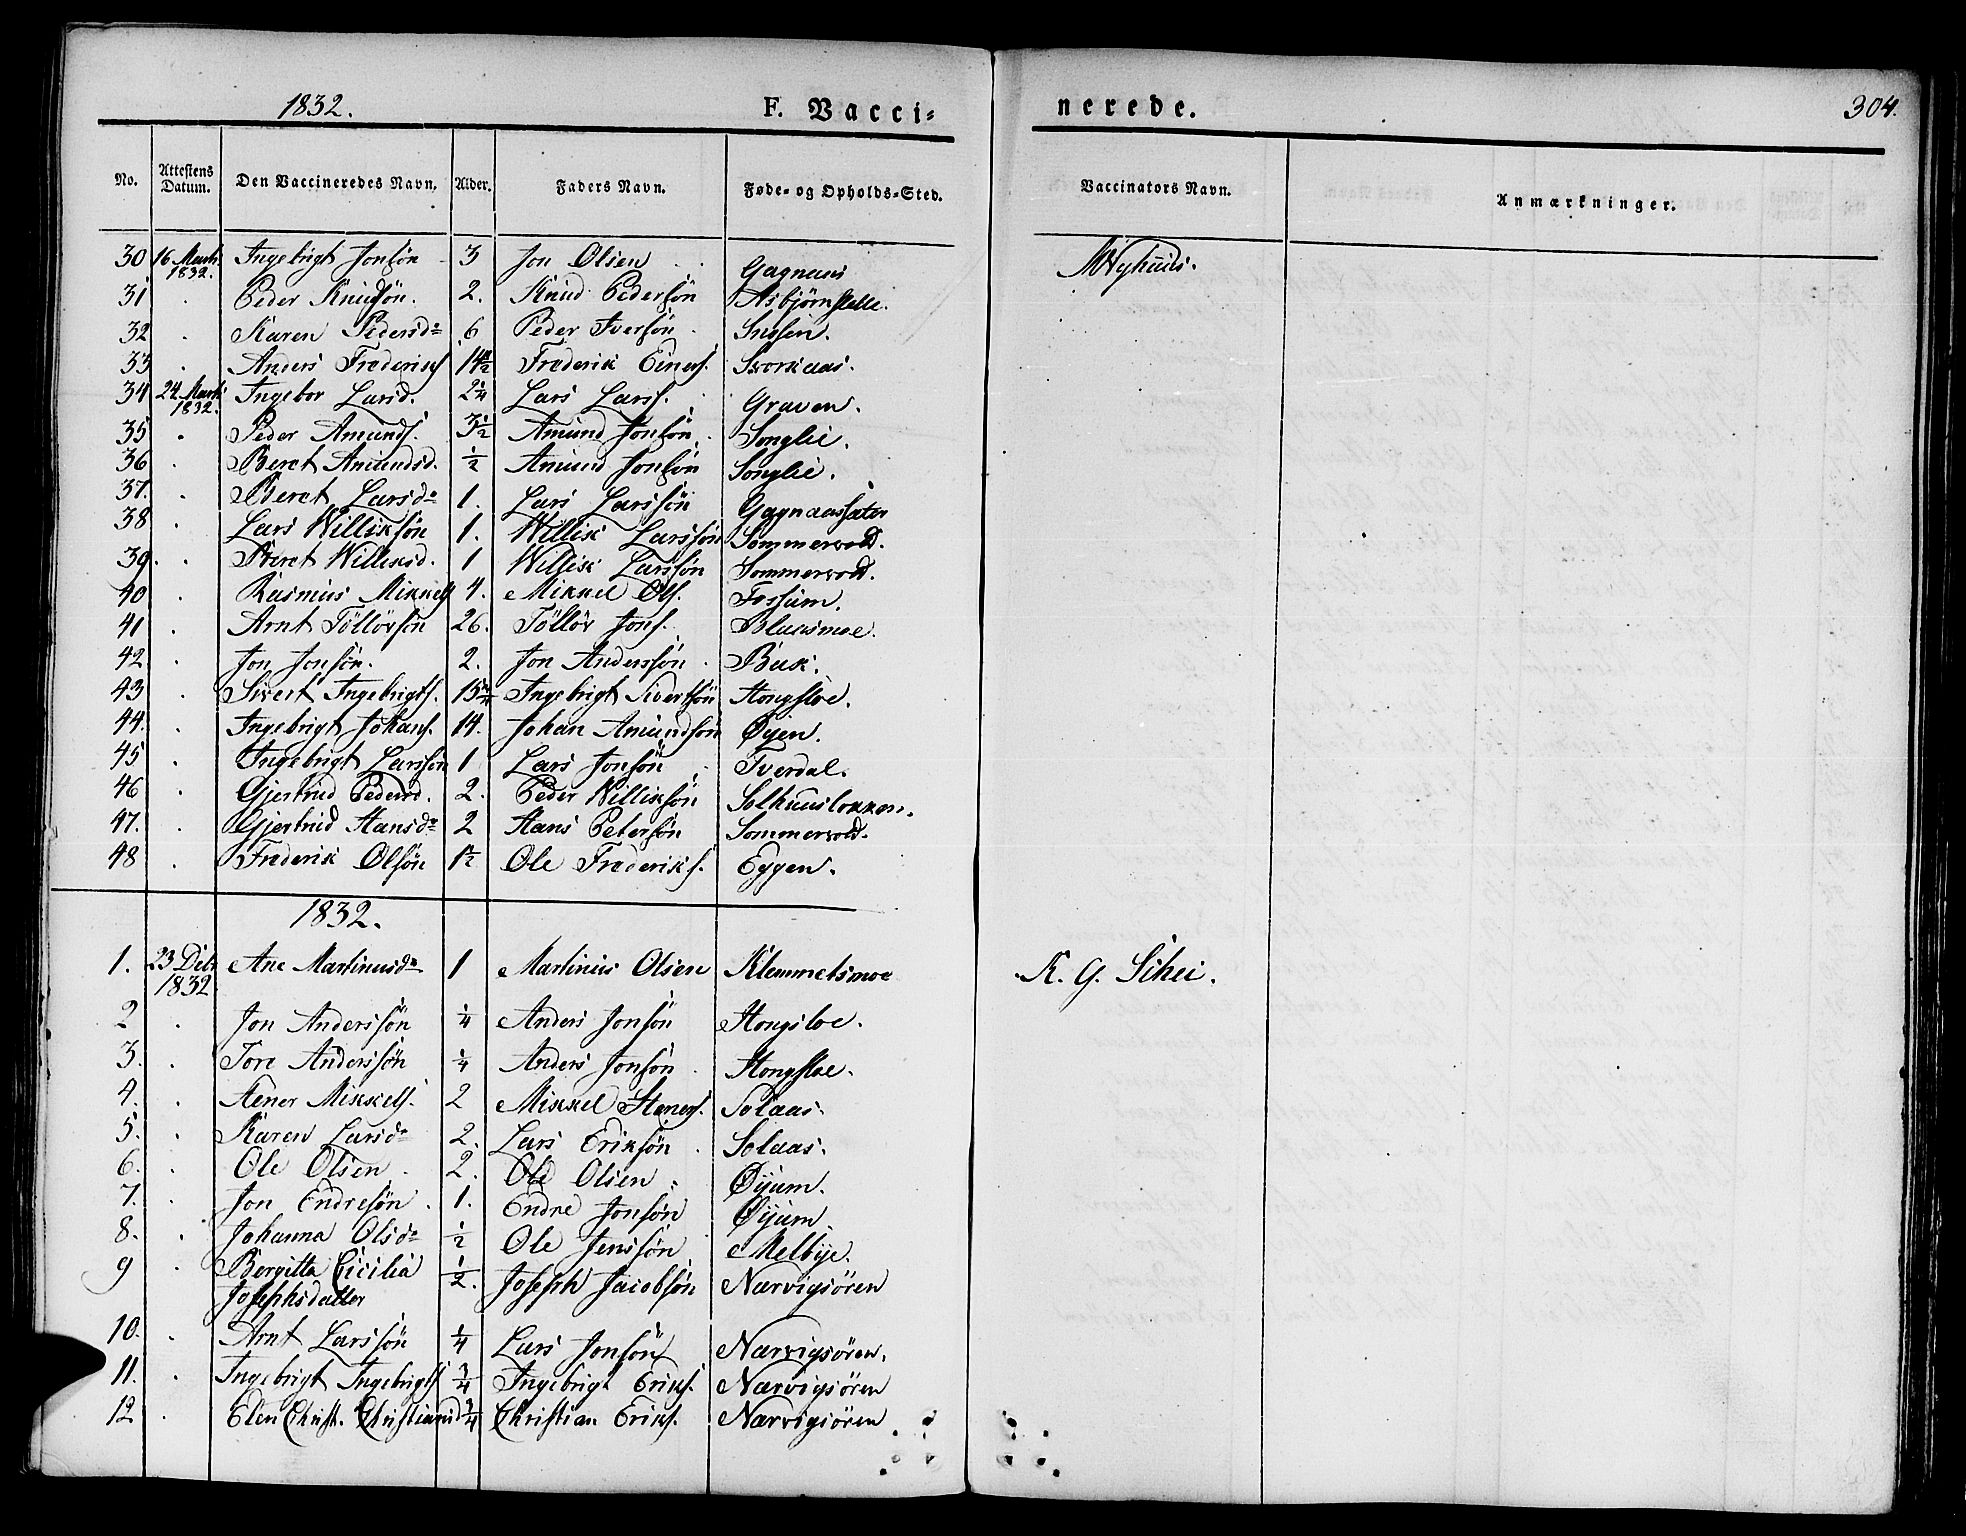 1832. F. Vacci= nerede. 304.
No. Attestens Datum. Den Vaccineredes Navn. Alder. Faders Navn. Føde- og Opholds-Sted. Vaccinators Navn. Anmærkninger.
30 16 Marti 1832. Ingebrigt Jonsön 3 Jon Olsen Gagnaas
31 . Peder Knudsön. 2. Knud Pedersön Asbjörnslelle.
32 . Karen Pedersd. 6 Peder Iversön Snsen.
33 . Anders Frederiks 14½ Frederik Einers. Svorkaas.
34 24 Marti 1832. Ingebor Larsd. 2¼ Lars Larss. Graven.
35 . Peder Amunds. 3½ Amund Jonsön. Songlie.
36 . Beret Amundsd. ½ Amund Jonsön Songlie.
37. . Beret Larsd. 1. Lars Larssön Gagnaassæter
38 . Lars Williksön 1. Willik Larssön Sommervold.
39. . Beret Williksd. 1 Willik Larssön Sommervold.
40 . Rasmus Mikkels 4. Mikkel Ols. Fossum.
41 . Arnt Töllövsön 26. Töllöv Jons. Blaasmoe.
42 . Jon Jonsön. 2. Jon Anderssön. Bak.
43 . Sivert Ingebrigts. 15 Ingebrigt Sivertsön Hongsloe.
44. . Ingebrigt Johans. 14. Johan Amundsön Øyen.
45 . Ingebrigt Larssön 1 Lars Jonsön Tverdal.
46 . Gjertrud Pedersd. 2. Peder Williksön Solhuusløkken.
47. . Gjertrud Hansd. 2 Hans Petersön Sommervold.
48 . Frederik Olsön 1½ Ole Frederiks. Eggen.
M Nyhuus.
1832.
1. 23 Debr 1832 Ane Martinusd. 1 Martinus Olsen Klemmetsmoe K. G. Sihei.
2 . Jon Anderssön ¼ Anders Jonsön Hongsloe.
3. . Tore Anderssön ¼ Anders Jonsön Hongsloe.
4. . Hener Mikkels. 2 Mikkel Heners. Solaas.
5. . Karen Larsd. 2. Lars Eriksön Solaas.
6. . Ole Olsen 2. Ole Olsen Øyum.
7. . Jon Endresön 1. Endre Jonsön Øyum.
8. . Johanna Olsd. ½ Ole Jenssön Melbye.
9 . Bergitta Cicilia Josephsdatter ½. Joseph Jacobsön Nærvigsören
10. . Arnt Larssön ¼ Lars Jonsön Nærvigsören.
11. . Ingebrigt Ingebrigts ¾ Ingebrigt Eriks. Nærvigsören
12 . Elen Christ. Christiansd ¾ Christian Eriks. Nærvigsören